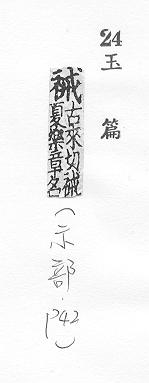 24
玉篇
祴
古來切祴
夏樂章名
(示部·P42)